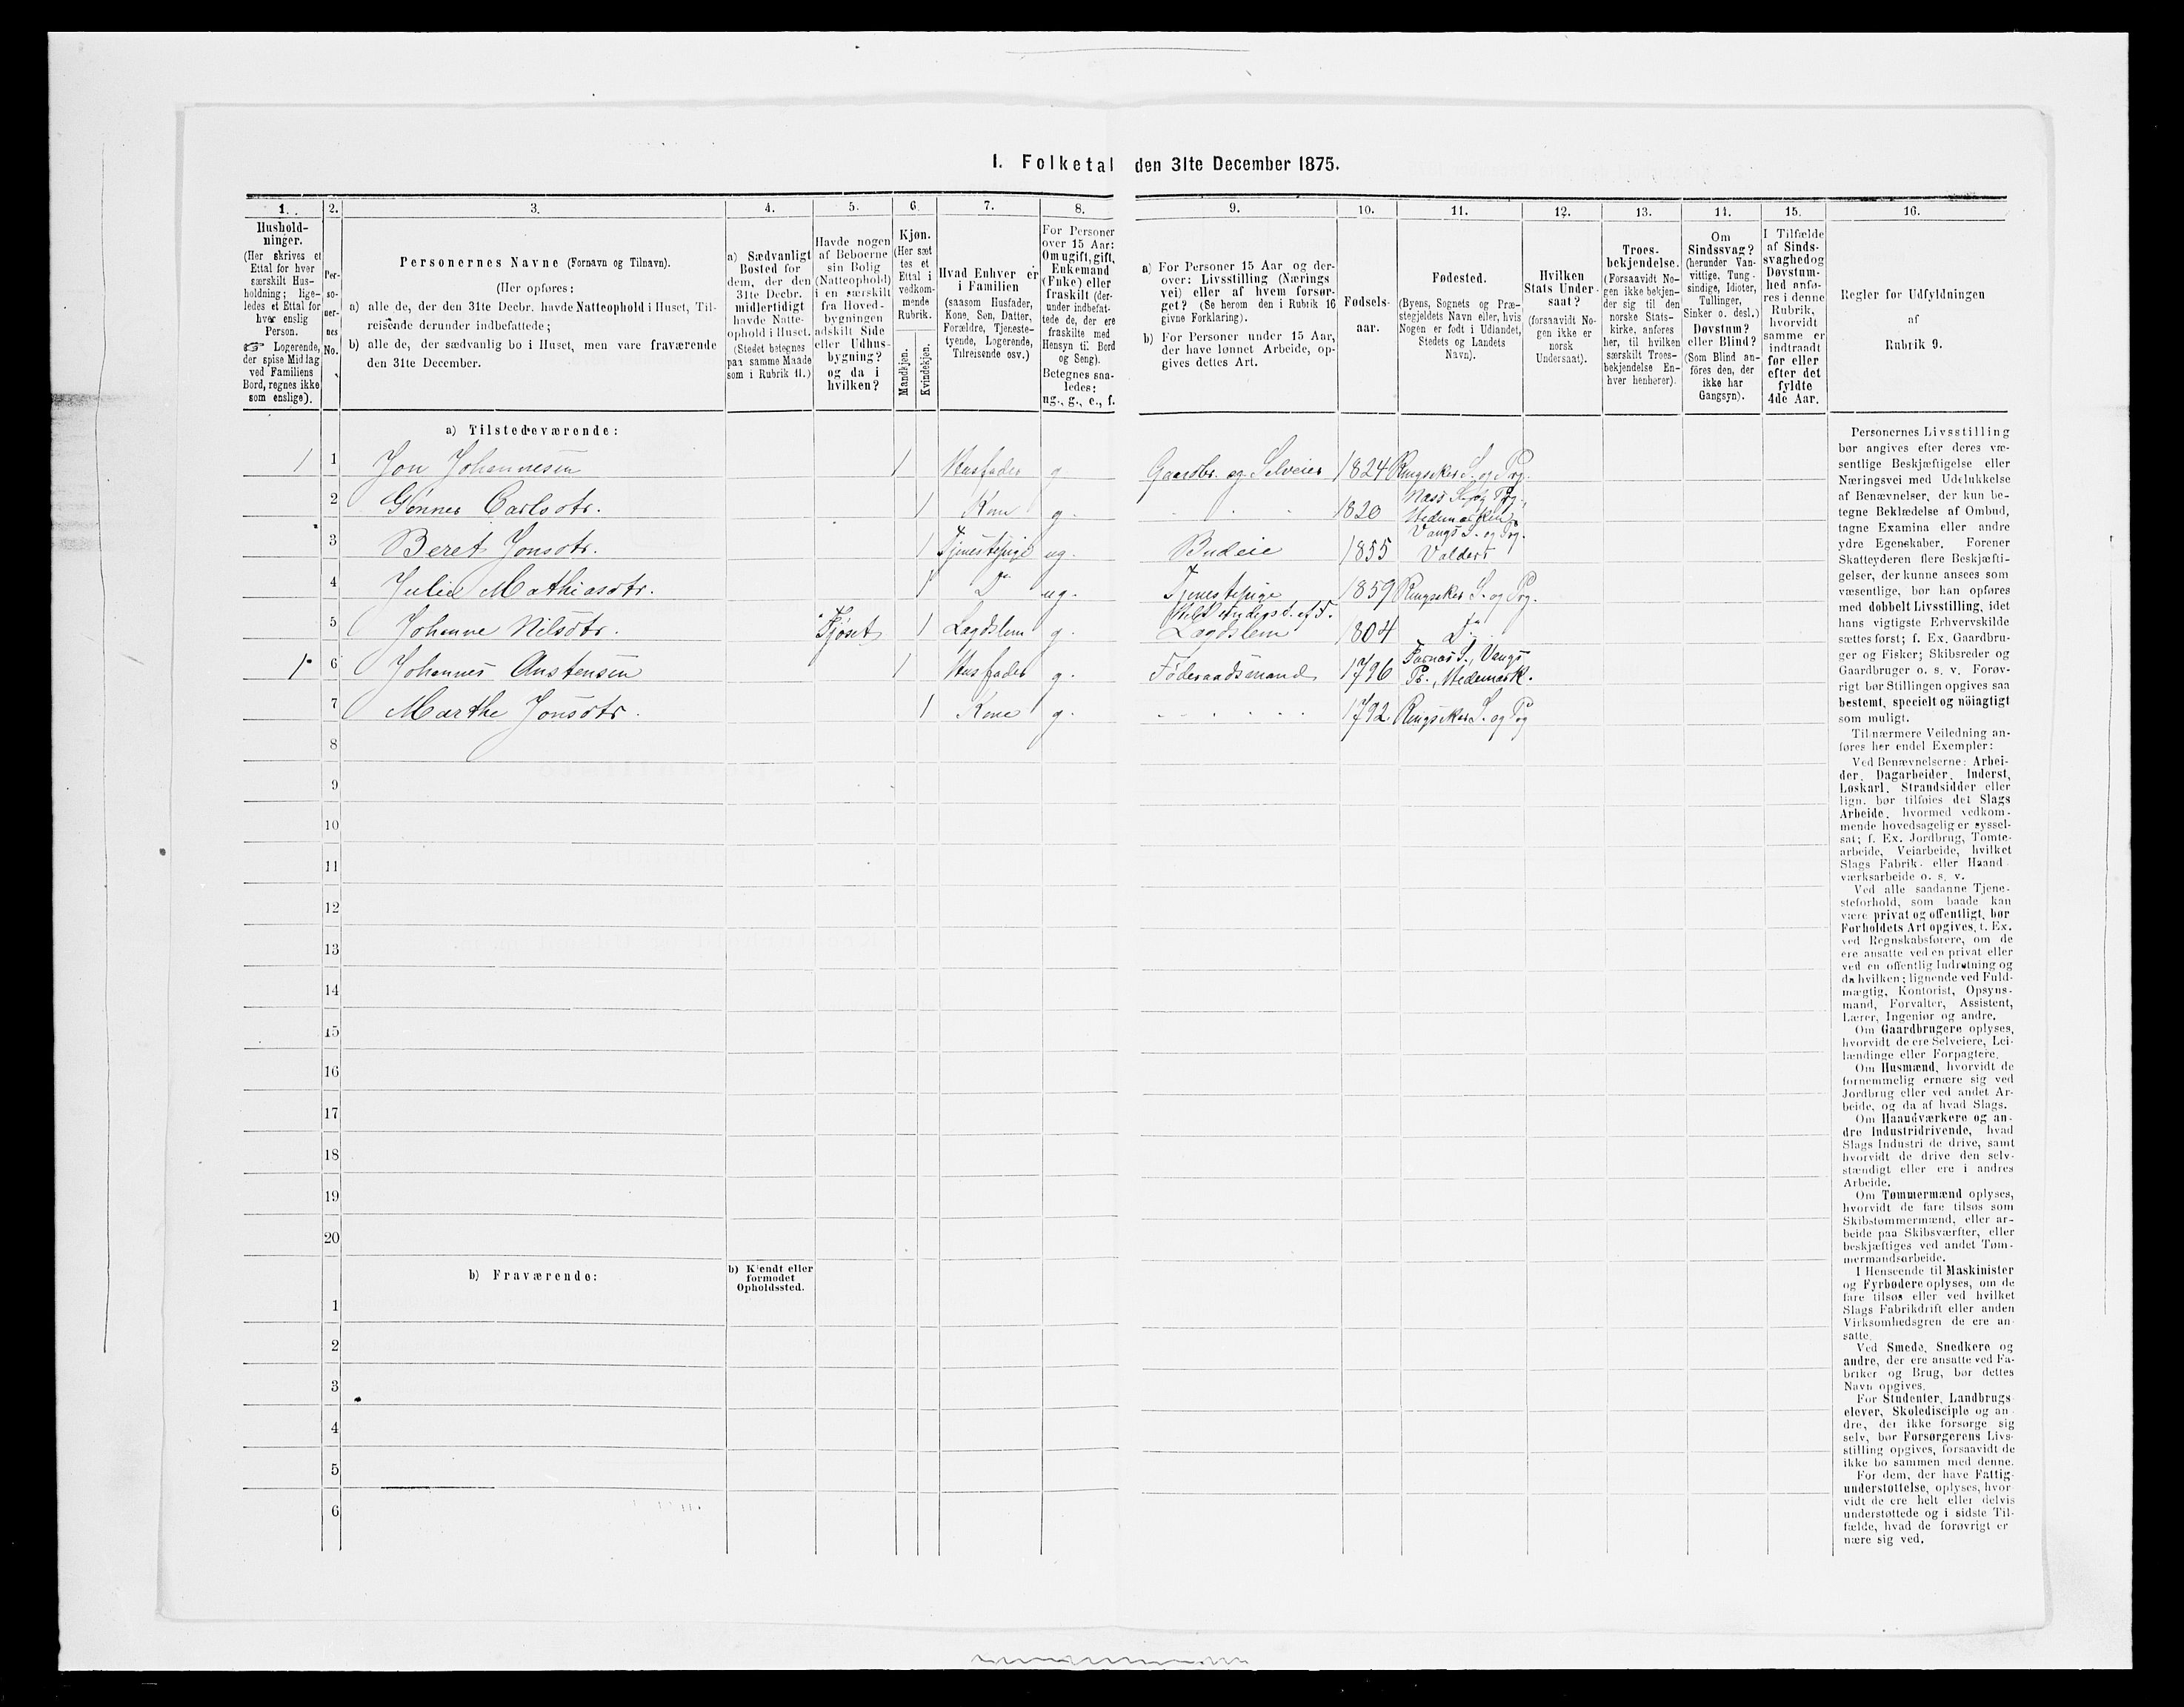 I. Folketal den 31te December 1875.
1. 2. 3. 4. 5. 6. 7. 8. 9. 10. 11. 12. 13. 14. 15. 16.
Hushold-
ninger.
(Her skrives et
Ettal for hver
særskilt Hus-
holdning; lige-
ledes et Ettal for
hver enslig
Person.
☞ Logerende,
der spise Middag
ved Familiens
Bord, regnes ikke
som enslige).
Per-
so-
ner-
nes
No.
Personernes Navne (Fornavn og Tilnavn).
(Her opføres:
a) alle de, der den 31te Decbr. havde Natteophold i Huset, Til-
reisende derunder indbefattede;
b) alle de, der sædvanlig bo i Huset, men vare fraværende
den 31te December.
a) Sædvanligt
Bosted for
dem, der den
31te Decbr.
midlertidigt
havde Natte-
ophold i Huset.
(Stedet betegnes
paa samme Maade
som i Rubrik 11.)
Havde nogen
af Beboerne
sin Bolig
(Natteophold)
i en særskilt
fra Hoved-
bygningen
adskilt Side
eller Udhus-
bygning?
og da i
hvilken?
Kjøn.
(Her sæt
tes et
Ettal i
vedkom-
mende
Rubrik.
Mandkjøn.
Kvindekjøn.
Hvad Enhver er
i Familien
(saasom Husfader,
Kone, Søn, Datter,
Forældre, Tjeneste-
tyende, Logerende,
Tilreisende osv.)
For Personer
over 15 Aar:
Om ugift, gift,
Enkemand
(Enke) eller
fraskilt (der-
under indbefat-
tede de, der ere
fraskilte med
Hensyn til Bord
og Seng).
Betegnes saa-
ledes:
ug., g., e., f.
a) For Personer 15 Aar og der-
over: Livsstilling (Nærings
vei) eller af hvem forsør-
get? (Se herom den i Rubrik 16
givne Forklaring).
b) For Personer under 15 Aar,
der have lønnet Arbeide, op-
gives dettes Art.
Fødsels-
aar.
Fødested.
(Byens, Sognets og Præ-
stegjeldets Navn eller, hvis
Nogen er født i Udlandet,
Stedets og Landets
Navn).
Hvilken
Stats Under-
saat?
(forsaavidt No-
gen ikke er
norsk
Undersaat).
Troes-
bekjendelse.
(Forsaavidt No-
gen ikke bekjen-
der sig til den
norske Stats-
kirke, anføres
her, til hvilken
særskilt Troes-
bekjendelse En-
hver henhører).
Om
Sindssvag?
(herunder Van-
vittige, Tung-
sindige, Idioter,
Tullinger,
Sinker o. desl.)
Døvstum?
eller Blind?
(Som Blind an-
föres den, der
ikke har
Gangsyn).
I Tilfælde
af Sinds-
svaghed og
Døvstum-
hed anfø-
res i denne
Rubrik,
hvorvidt
samme er
indtraadt
før eller
efter det
fyldte
4de Aar.
Regler for Udfyldningen
af
Rubrik 9.
a) Tilstedeværende:
1 1 Jon Johannesen 1 Husfader g Gaardbr. og Selveier 1824 Ringsaker S. og Pg.
2 Gønner Carlsdtr. 1 Kone g. 1820 Næss S. og Pg., Hedemarken
3 Beret Jonsdtr. 1 Tjenestepige ug. Budeie 1855 Vangs S. og Pg. Valders
4 Julie Mathiasdtr. 1 Do ug. Tjenestepige 1859 Ringsaker S. og Pg.
5 Johanne Nilsdtr. Fjøset 1 Lægdslem g. Lægdslem 1804 Do
1 6 Johannes Austensen 1 Husfader g. Føderaadsmand 1796 Furnæs S., Vangs Pg., Hedemark.
7 Marthe Jonsdtr. 1 Kone g. 1792 Ringsaker S. og Pg
8
9
10
11
12
13
14
15
16
17
18
19
20
b) Fraværende:
b) Kjendt eller
formodet
Opholdssted.
1
2
3
4
5
6
Personernes Livsstilling
bør angives efter deres væ-
sentlige Beskjæftigelse eller
Næringsvei med Udelukkelse
af Benævnelser, der kun be-
tegne Beklædelse af Ombud,
tagne Examina eller andre
ydre Egenskaber. Forener
Skatteyderen flere Beskjæfti-
gelser, der kunne ansees som
væsentlige, bør han opføres
med dobbelt Livsstilling, idet
hans vigtigste Erhvervskilde
sættes først; f. Ex. Gaardbru-
ger og Fisker; Skibsreder og
Gaardbruger o. s. v. Forøv-
rigt bør Stillingen opgives saa
bestemt, specielt og nöiagtigt
som muligt.
Til nærmere Veiledning an-
føres her endel Exempler:
Ved Benævnelserne: Arbei-
der, Dagarbeider, Inderst,
Løskarl, Strandsidder eller
lign. bør tilføies det Slags
Arbeide, hvormed vedkom-
mende hovedsagelig er syssel-
sat; f. Ex. Jordbrug, Tomte-
arbeide, Veiarbeide, hvilket
Slags Fabrik- eller Haand-
værksarbeide o. s. v.
Ved alle saadanne Tjene-
steforhold, som baade kan
være privat og offentligt, bør
Forholdets Art opgives, f. Ex.
ved Regnskabsførere, om de
ere ansatte ved en privat eller
ved en offentlig Indretning og
da hvilken; lignende ved Fuld-
mægtig, Kontorist, Opsyns-
mand, Forvalter, Assistent,
Lærer, Ingeniør og andre.
Om Gaardbrugere oplyses,
hvorvidt de ere Selveiere, Lei-
lændinge eller Forpagtere.
Om Husmænd, hvorvidt de
fornemmelig ernære sig ved
Jordbrug eller ved andet Ar-
beide, og da af hvad Slags.
Om Haandværkere og an-
dre Industridrivende, hvad
Slags Industri de drive, samt
hvorvidt de drive den selv-
stændigt eller ere i andres
Arbeide.
Om Tømmermænd oplyses,
hvorvidt de fare tilsøs som
Skibstømmermænd, eller ar-
beide paa Skibsværfter, eller
beskjæftiges ved andet Tøm-
mermandsarbeide.
I Henseende til Maskinister
og Fyrbødere oplyses, om de
fare tilsøs eller ved hvilket
Slags Fabrikdrift eller anden
Virksomhedsgren de ere an-
satte.
Ved Smede, Snedkere og
andre, der ere ansatte ved Fa-
briker og Brug, bør dettes
Navn opgives.
For Studenter, Landbrugs-
elever, Skoledisciple og an-
dre, der ikke forsørge sig
selv, bør Forsørgerens Livs-
stilling opgives, forsaavidt de
ikke bo sammen med denne.
For dem, der have Fattig-
understøttelse, oplyses, hvor-
vidt de ere helt eller delvis
understøttede og i sidste Til-
fælde, hvad de forøvrigt er-
nære sig ved.